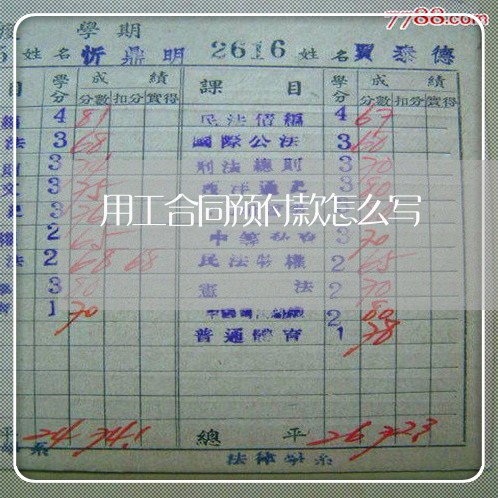 7788.com
學期
姓名 忻鼎明 2616 姓名 賈泰德
目 學分 成績 課目 學分 成績
分數 扣分 實得 分數 扣分 實得
4 81 民法債編 4 67
法 3 68 國際公法 3 60
3 刑法總則 3 70
文 3 75 西洋通史 3 80
用工合同预付款怎么写
權 2 65 3 70
法 2 68 68 民法物權 2 65
3 80 憲法 2 70
育 1 70 2 80
普通體育 1 78
平 24 74.1 總平 26 72.3
系 法律學系